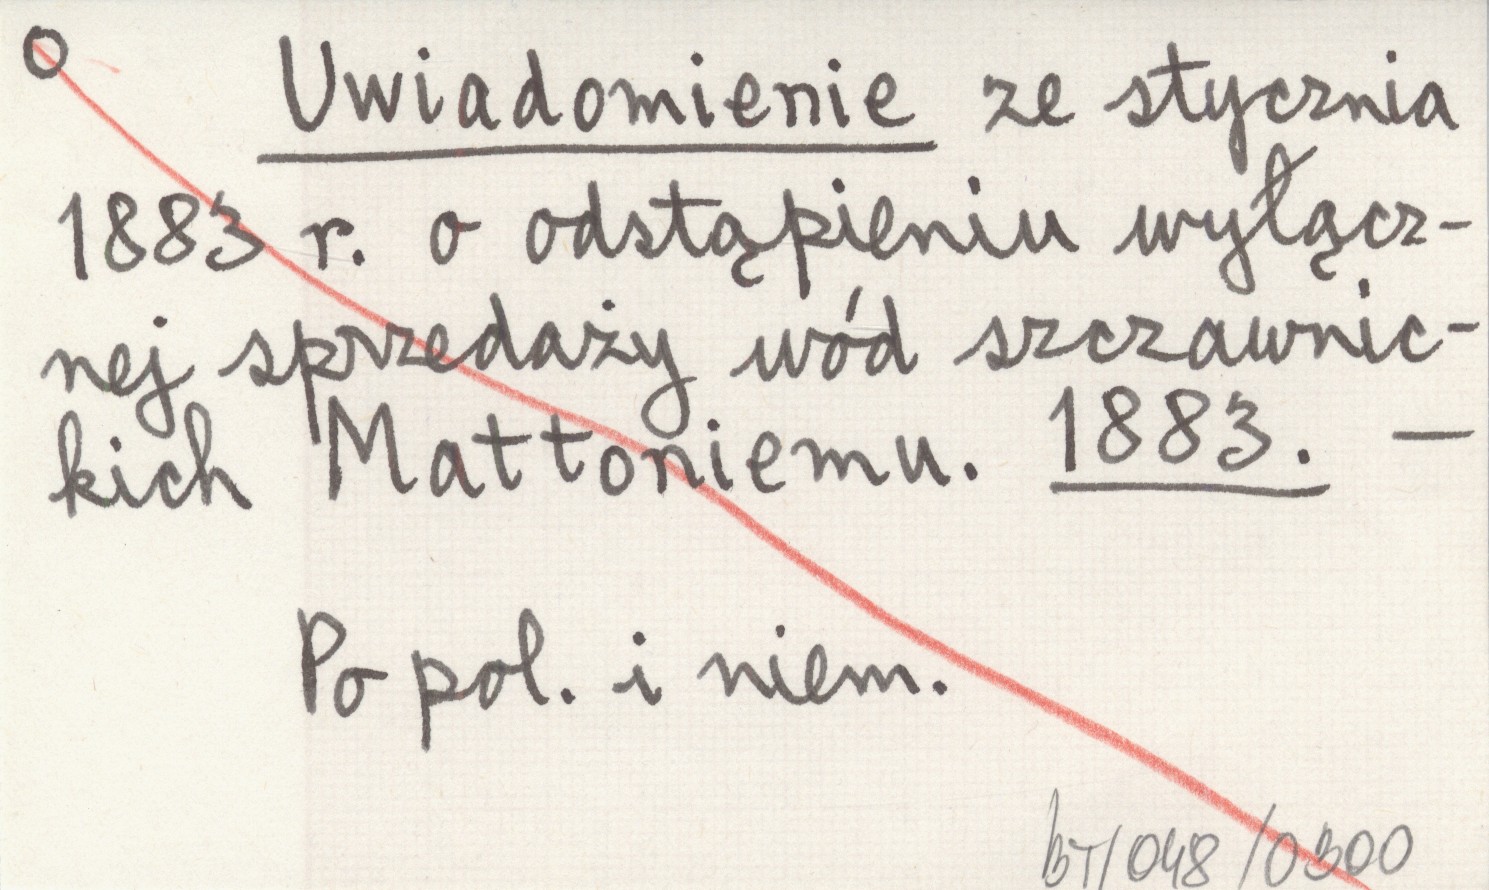 O
Uwiadomienie ze stycznia
1883 r. o odstąpieniu wyłącz-
nej sprzedaży wód szczawnic-
kich Mattoniemu. 1883. —
Po pol. i niem.
BT/048/0300